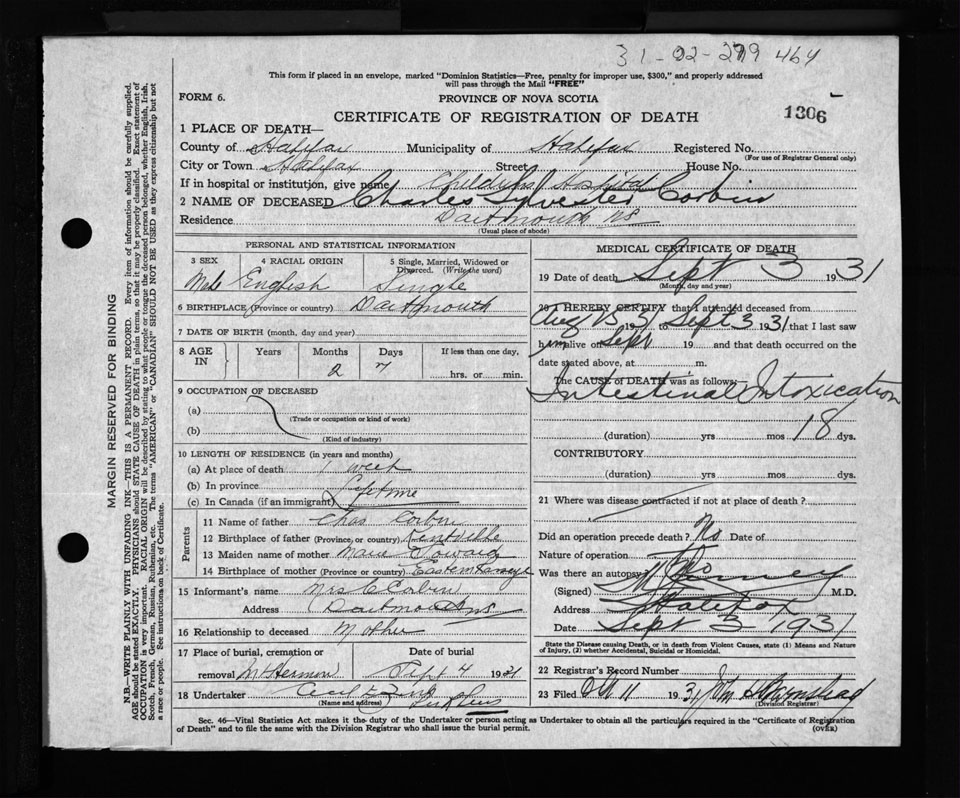 31-02-279 464
This form if placed in an envelope, marked "Dominion Statistics—Free, penalty for improper use, $300," and properly addressed
will pass through the Mail "FREE"
FORM 6.
PROVINCE OF NOVA SCOTIA
CERTIFICATE OF REGISTRATION OF DEATH
1306
1 PLACE OF DEATH—
County of Halifax Municipality of Halifax Registered No.
(For use of Registrar General only)
City or Town Halifax Street House No.
If in hospital or institution, give name Childrens Hospital
2 NAME OF DECEASED Charles Sylvester Corbin
Residence Dartmouth NS
(Usual place of abode)
PERSONAL AND STATISTICAL INFORMATION
3 SEX 4 RACIAL ORIGIN 5 Single, Married, Widowed or Divorced. (Write the word)
Male English Single
6 BIRTHPLACE (Province or country) Dartmouth
7 DATE OF BIRTH (month, day and year)
8 AGE IN Years Months Days If less than one day,
2 7 hrs. or min.
9 OCCUPATION OF DECEASED
(a)
(Trade or occupation or kind of work)
(b)
(Kind of industry)
10 LENGTH OF RESIDENCE (in years and months)
(a) At place of death 1 week
(b) In province
(c) In Canada (if an immigrant) Lifetime
Parents
11 Name of father Chas Corbin
12 Birthplace of father (Province or country) Kentville
13 Maiden name of mother Marie
14 Birthplace of mother (Province or country) Eastern Passage
15 Informant's name Mrs C Corbin
Address Dartmouth NS
16 Relationship to deceased Mother
17 Place of burial, cremation or removal Date of burial
Mt Hermon Sept 4 1931
18 Undertaker Cecil E
(Name and address)
MEDICAL CERTIFICATE OF DEATH
19 Date of death Sept 3 1931
(Month, day and year)
20 I HEREBY CERTIFY that I attended deceased from
Aug 15 1931 to Sept 3 1931 that I last saw
him alive on Sept 19 and that death occurred on the
date stated above, at m.
The CAUSE of DEATH was as follows:
Intestinal Intoxication
(duration) yrs mos 18 dys.
CONTRIBUTORY
(duration) yrs mos dys.
21 Where was disease contracted if not at place of death?
Did an operation precede death? No Date of
Nature of operation
Was there an autopsy? No
(Signed) M.D.
Address Halifax
Date Sept 3 1931
State the Disease causing Death, or in death from Violent Causes, state (1) Means and Nature
of Injury, (2) whether Accidental, Suicidal or Homicidal.
22 Registrar's Record Number
23 Filed Oct 11 1931
(Division Registrar)
Sec. 46—Vital Statistics Act makes it the duty of the Undertaker or person acting as Undertaker to obtain all the particulars required in the "Certificate of Registration
of Death" and to file the same with the Division Registrar who shall issue the burial permit.
(OVER)
MARGIN RESERVED FOR BINDING
N.B.—WRITE PLAINLY WITH UNFADING INK—THIS IS A PERMANENT RECORD. Every item of information should be carefully supplied.
AGE should be stated EXACTLY. PHYSICIANS should STATE CAUSE OF DEATH in plain terms, so that it may be properly classified. Exact statement of
OCCUPATION is very important. RACIAL ORIGIN will be described by stating to what people or tongue the deceased person belonged, whether English, Irish,
Scotch, French, German, Russian, Ruthenian, etc. The terms "AMERICAN" or "CANADIAN" SHOULD NOT BE USED as they express citizenship but not
a race or people. See instructions on back of Certificate.